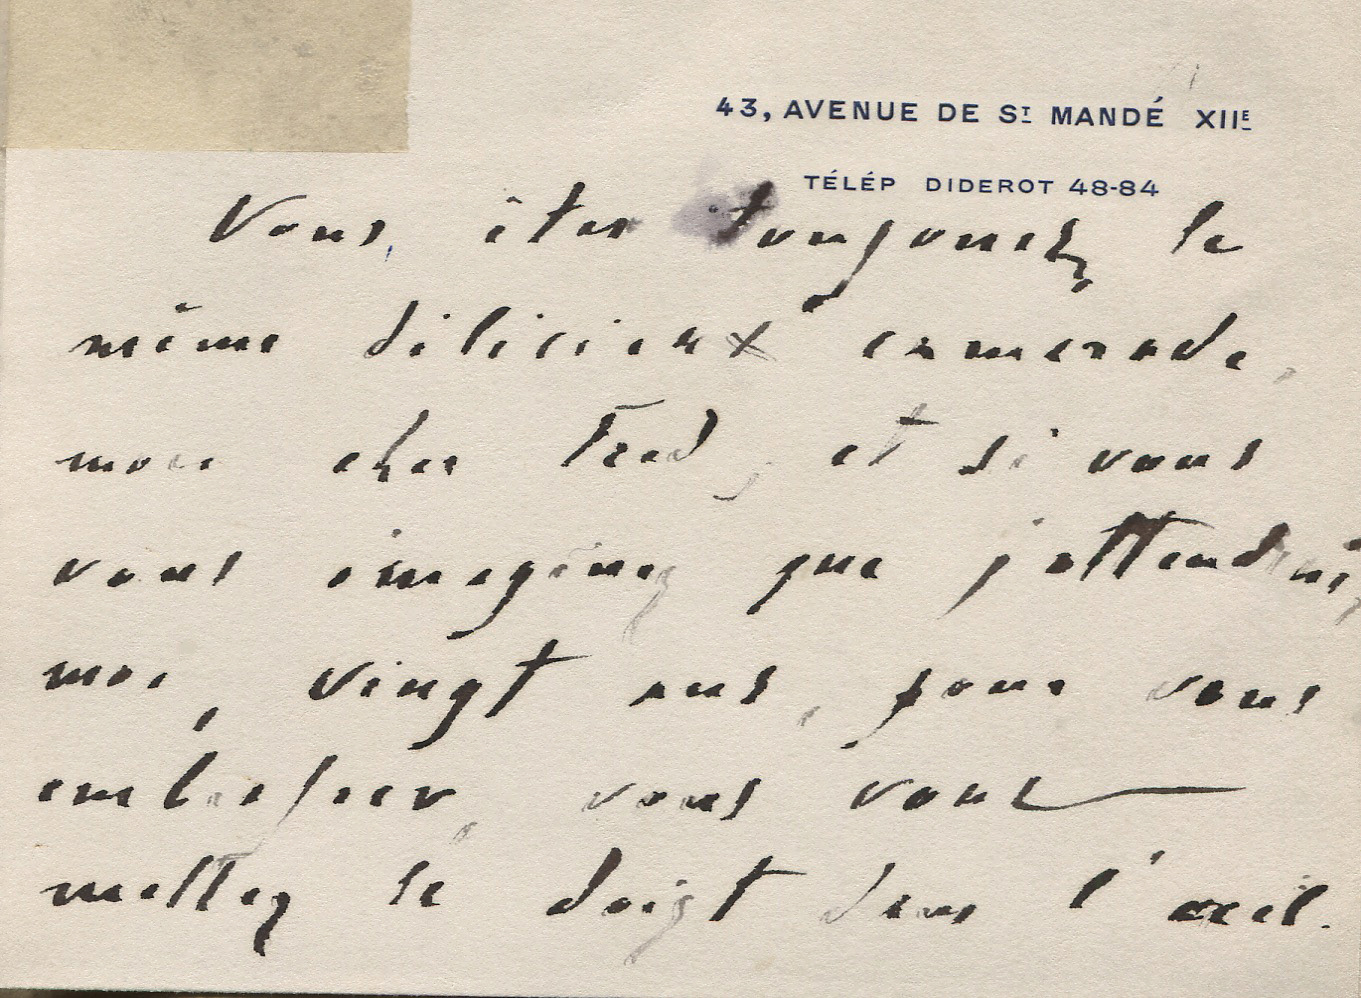 43, AVENUE DE ST MANDÉ XIIE
TÉLÉP DIDEROT 48-84
Vous êtes toujours le
même délicieux camarade,
mon cher Fred, et si vous
vous imaginez que j'attendrai,
moi, vingt ans, pour vous
embrasser, vous vous
mettez le doigt dans l'œil.